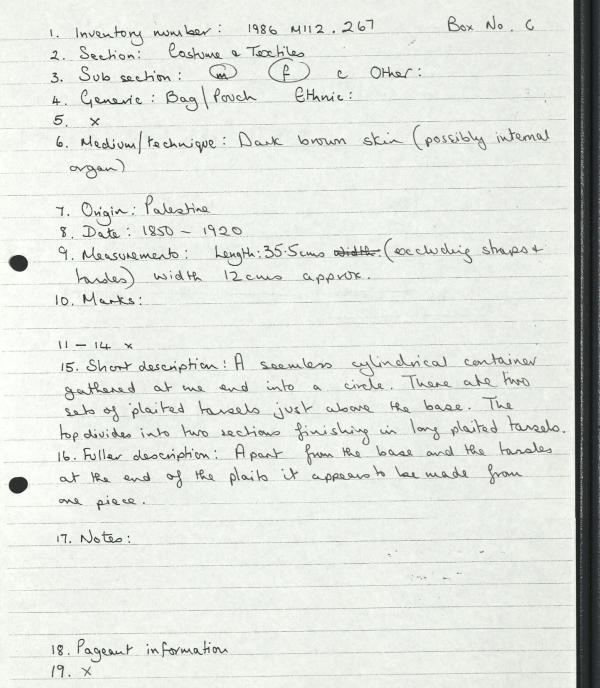 1. Inventory number: 1986 M112.267 Box No. C
2. Section: Costume & Textiles
3. Sub section: m f c Other:
4. Generic: Bag/Pouch Ethnic:
5. x
6. Medium/technique: Dark brown skin (possibly internal
organ)
7. Origin: Palestine
8. Date: 1850 - 1920
9. Measurements: Length: 35.5cms width: (excluding straps +
tarsles) width 12cms approx.
10. Marks:
11 - 14 x
15. Short description: A seemless cylindrical container
gathered at one end into a circle. There are two
sets of plaited tarsels just above the base. The
top divides into two sections finishing in long plaited tarsels.
16. Fuller description: Apart from the base and the tarsles
at the end of the plaits it appears to be made from
one piece.
17. Notes:
18. Pageant information
19. x